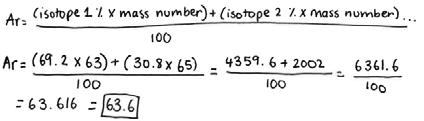 Ar = (isotope 1 % x mass number) + (isotope 2 % x mass number) ... / 100
Ar = (69.2 x 63) + (30.8 x 65) / 100 = 4359.6 + 2002 / 100 = 6361.6 / 100
= 63.616 = 63.6